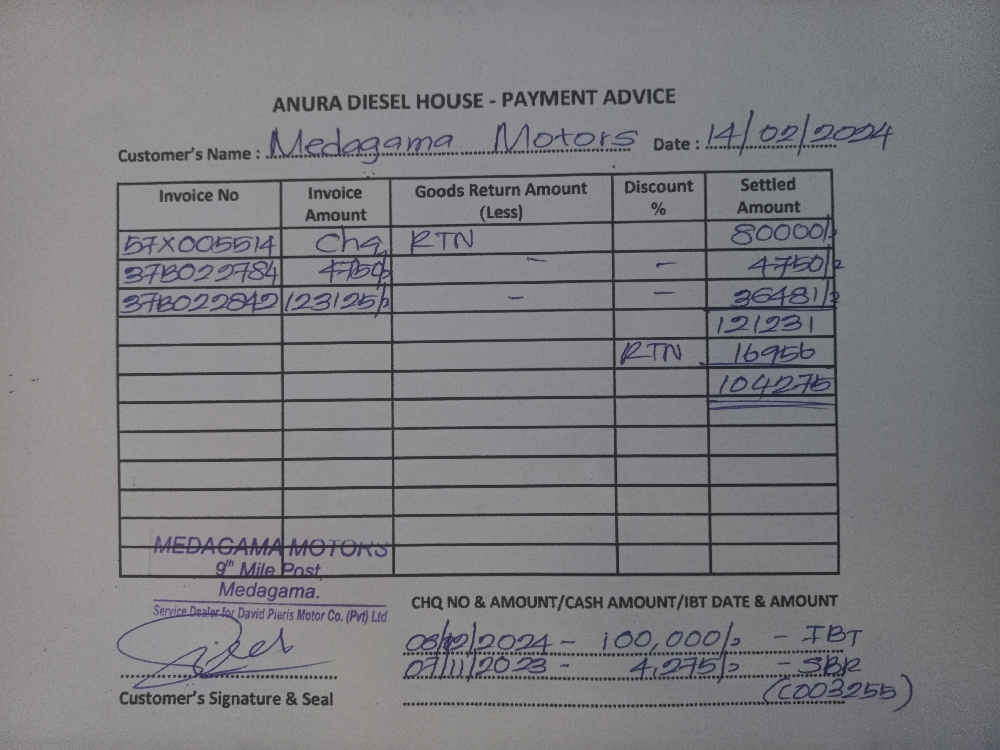 ANURA DIESEL HOUSE - PAYMENT ADVICE
Customer's Name : Medagama Motors Date : 14/02/2024
Invoice No Invoice Amount Goods Return Amount (Less) Discount % Settled Amount
57X005514 Chq RTN 80000/-
37B022784 4750/- - - 4750/-
37B022842 123125/- - - 36481/-
121231
RTN 16956
104275
MEDAGAMA MOTORS
9th Mile Post
Medagama.
Service Dealer for David Pieris Motor Co. (Pvt) Ltd
CHQ NO & AMOUNT/CASH AMOUNT/IBT DATE & AMOUNT
08/02/2024 - 100,000/- - IBT
07/11/2023 - 4,275/- - SBR
(C003255)
Customer's Signature & Seal